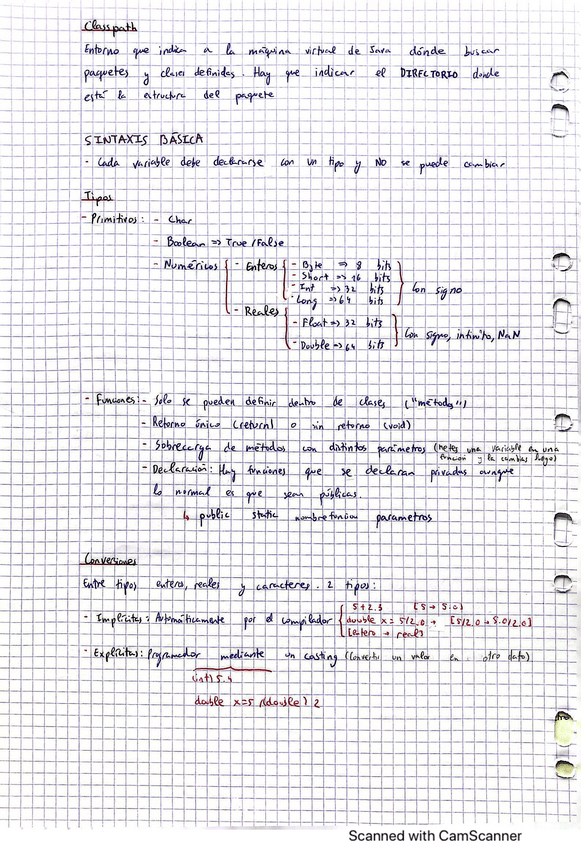 Classpath
Entorno que indica a la máquina virtual de Java dónde buscar
paquetes y clases definidas. Hay que indicar el DIRECTORIO donde
está la estructura del paquete
SINTAXIS BÁSICA
- Cada variable debe declararse con un tipo y NO se puede cambiar
Tipos
- Primitivos: - Char
- Boolean => True/False
- Numéricos - Enteros - Byte => 8 bits
- Short => 16 bits
- Int => 32 bits
- Long => 64 bits
Con signo
- Reales - Float => 32 bits
- Double => 64 bits
Con signo, infinito, NaN
- Funciones: - Solo se pueden definir dentro de clases ("métodos")
- Retorno único (return) o sin retorno (void)
- Sobrecarga de métodos con distintos parámetros (metes una variable en una
función y la cambias luego)
- Declaración: Hay funciones que se declaran privadas aunque
lo normal es que sean públicas.
↳ public static nombrefuncion parametros
Conversiones
Entre tipos enteros, reales y caracteres. 2 tipos:
- Implícitas: Automáticamente por el compilador
5+2.3 [5 → 5.0]
double x = 5/2.0 → [5/2.0 → 5.0/2.0]
[entero → real]
- Explícitas: Programador mediante un casting (Convertir un valor en otro dato)
(int) 5.4
double x=5 /(double) 2
Scanned with CamScanner